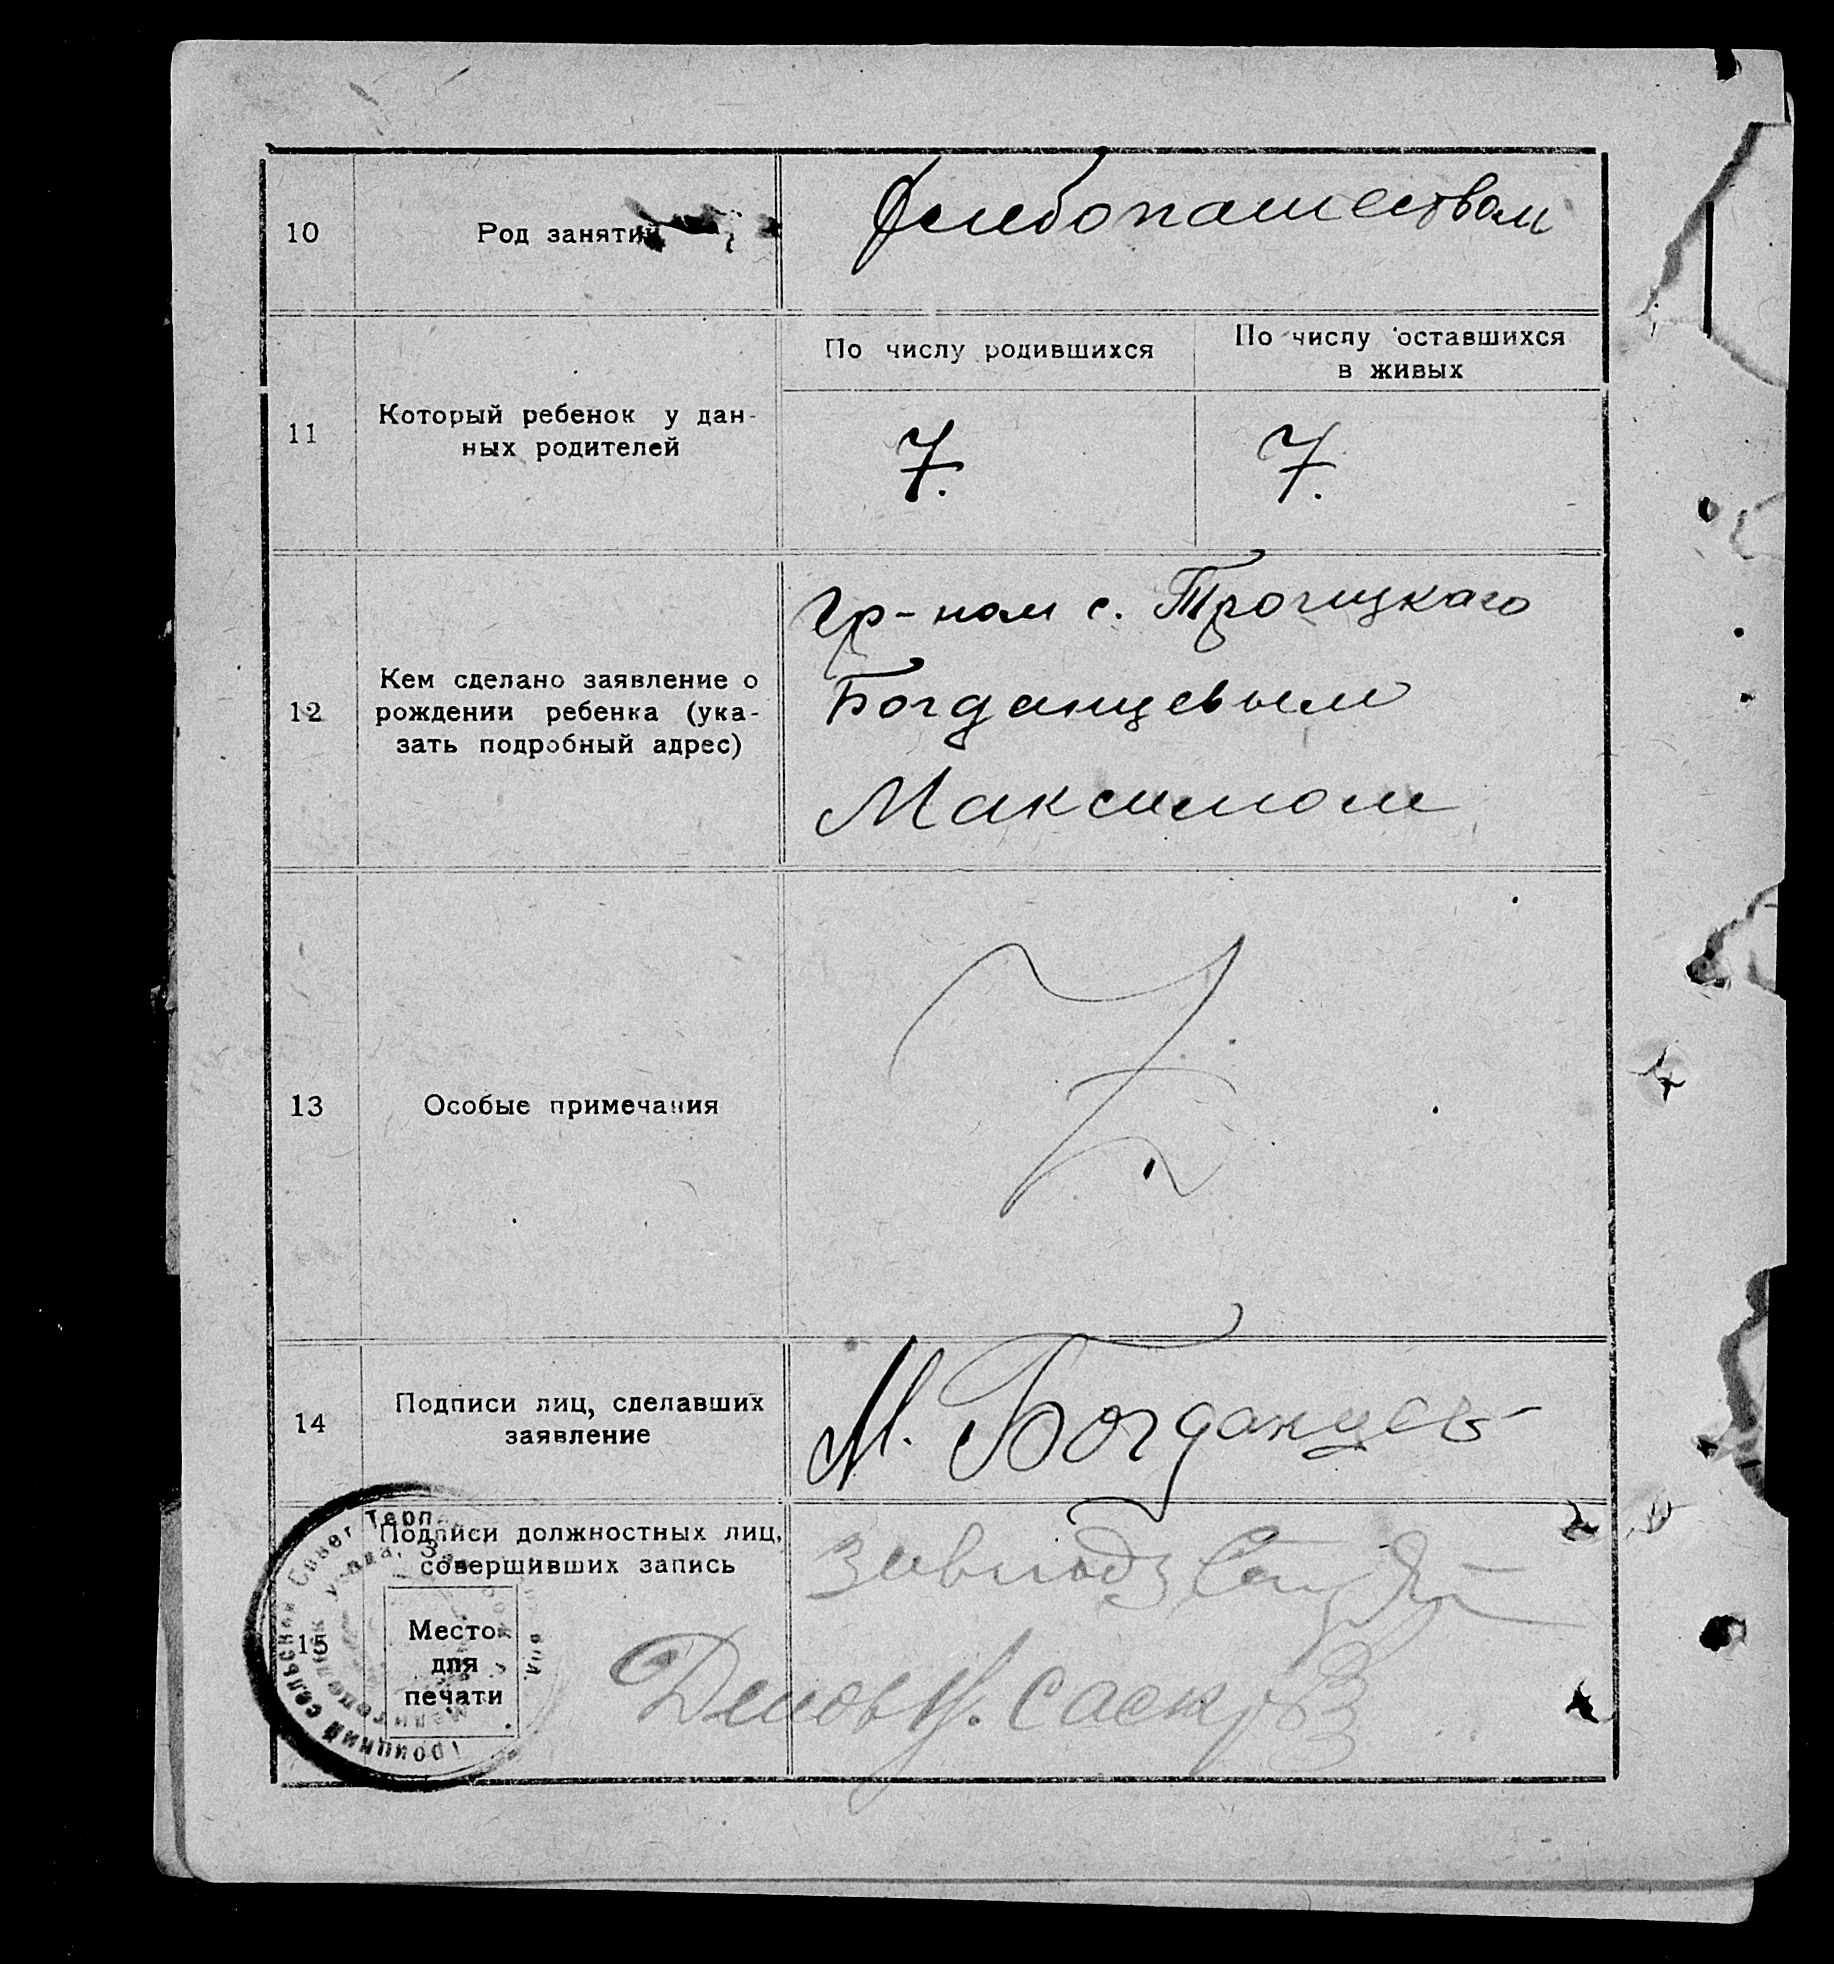 10
Род занятий
Хлебопашеством
11
Который ребенок у дан-
ных родителей
По числу родившихся
По числу оставшихся
в живых
7.
7.
12
Кем сделано заявление о
рождении ребенка (ука-
зать подробный адрес)
Гр-ном с. Троицкаго
Богданцевым
Максимом
13
Особые примечания
14
Подписи лиц, сделавших
заявление
М. Богданцев
15
Подписи должностных лиц,
совершивших запись
Место
для
печати
Троицкий сельский Совет Терп.